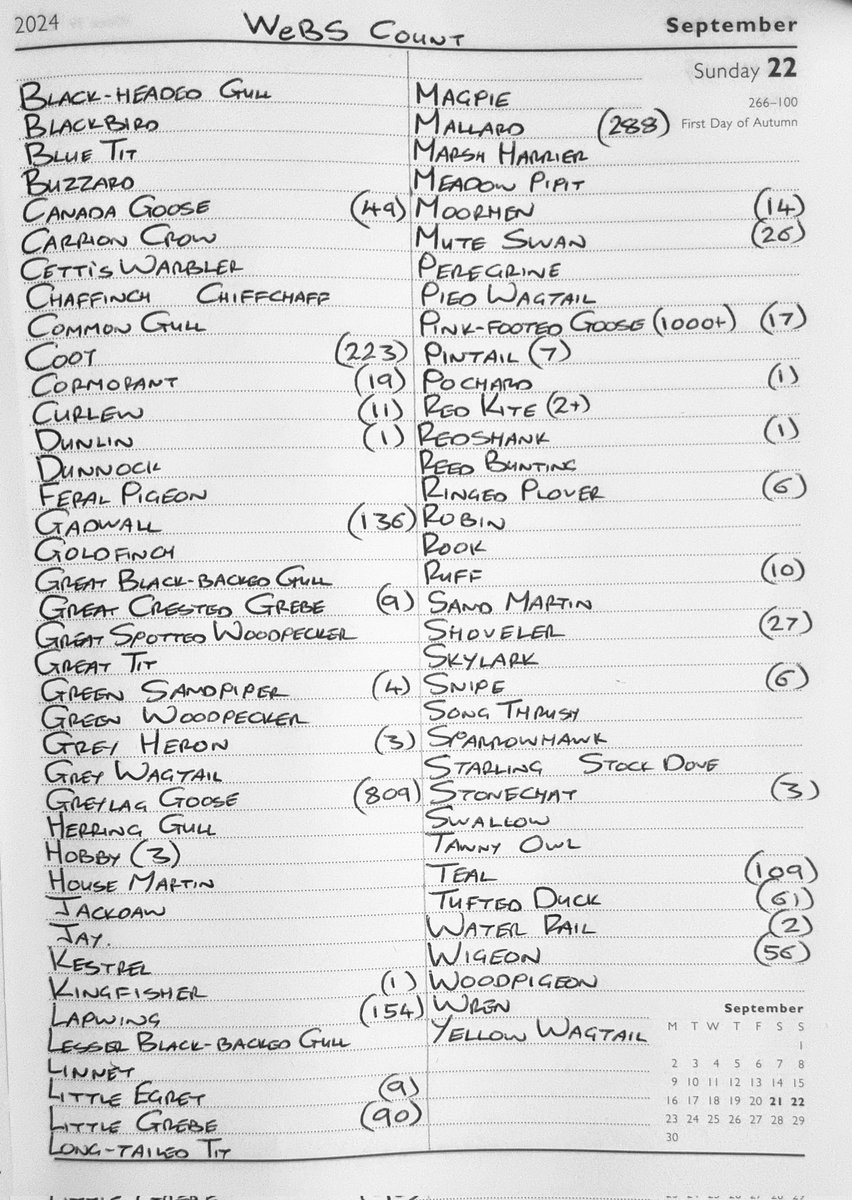 2024 WeBS COUNT September
Sunday 22
266–100
First Day of Autumn
BLACK-HEADED GULL
BLACKBIRD
BLUE TIT
BUZZARD
CANADA GOOSE (49)
CARRION CROW
CETTI'S WARBLER
CHAFFINCH CHIFFCHAFF
COMMON GULL
COOT (223)
CORMORANT (19)
CURLEW (11)
DUNLIN (1)
DUNNOCK
FERAL PIGEON
GADWALL (136)
GOLDFINCH
GREAT BLACK-BACKED GULL
GREAT CRESTED GREBE (9)
GREAT SPOTTED WOODPECKER
GREAT TIT
GREEN SANDPIPER (4)
GREEN WOODPECKER
GREY HERON (3)
GREY WAGTAIL
GREYLAG GOOSE (809)
HERRING GULL
HOBBY (3)
HOUSE MARTIN
JACKDAW
JAY.
KESTREL
KINGFISHER (1)
LAPWING (154)
LESSER BLACK-BACKED GULL
LINNET
LITTLE EGRET (9)
LITTLE GREBE (90)
LONG-TAILED TIT
MAGPIE
MALLARD (288)
MARSH HARRIER
MEADOW PIPIT
MOORHEN (14)
MUTE SWAN (26)
PEREGRINE
PIED WAGTAIL
PINK-FOOTED GOOSE (1000+) (17)
PINTAIL (7)
POCHARD (1)
RED KITE (2+)
REDSHANK (1)
REED BUNTING
RINGED PLOVER (6)
ROBIN
ROOK
RUFF (10)
SAND MARTIN
SHOVELER (27)
SKYLARK
SNIPE (6)
SONG THRUSH
SPARROWHAWK
STARLING STOCK DOVE
STONECHAT (3)
SWALLOW
TAWNY OWL
TEAL (109)
TUFTED DUCK (61)
WATER RAIL (2)
WIGEON (56)
WOODPIGEON
WREN
YELLOW WAGTAIL
September
M T W T F S S
1
2 3 4 5 6 7 8
9 10 11 12 13 14 15
16 17 18 19 20 21 22
23 24 25 26 27 28 29
30